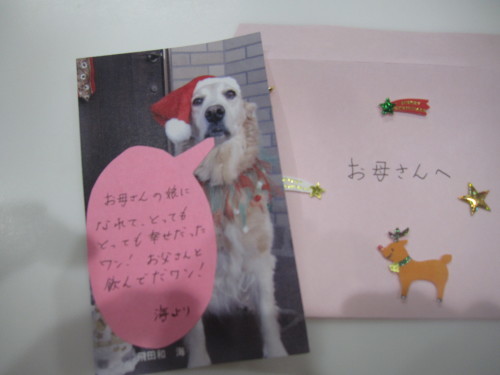 お母さんの娘に
なれて、とっても
とっても幸せだった
ワン! お父さんと
飲んでだワン!
海より
飛田和 海
お母さんへ